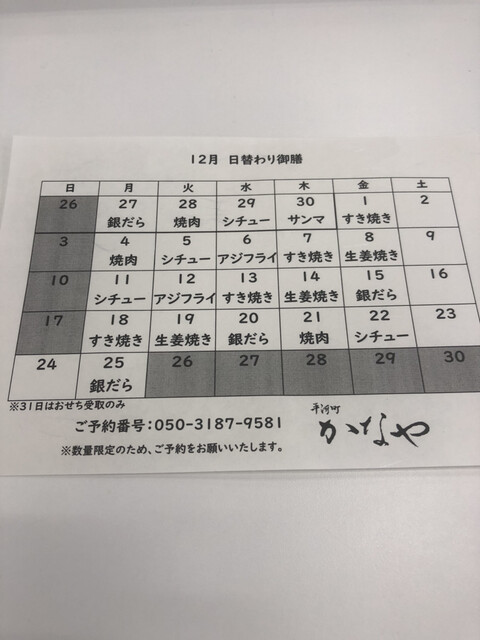 12月 日替わり御膳
日 月 火 水 木 金 土
26 27 28 29 30 1 2
銀だら 焼肉 シチュー サンマ すき焼き
3 4 5 6 7 8 9
焼肉 シチュー アジフライ すき焼き 生姜焼き
10 11 12 13 14 15 16
シチュー アジフライ すき焼き 生姜焼き 銀だら
17 18 19 20 21 22 23
すき焼き 生姜焼き 銀だら 焼肉 シチュー
24 25 26 27 28 29 30
銀だら
※31日はおせち受取のみ
ご予約番号:050-3187-9581
※数量限定のため、ご予約をお願いいたします。
平河町
かなや